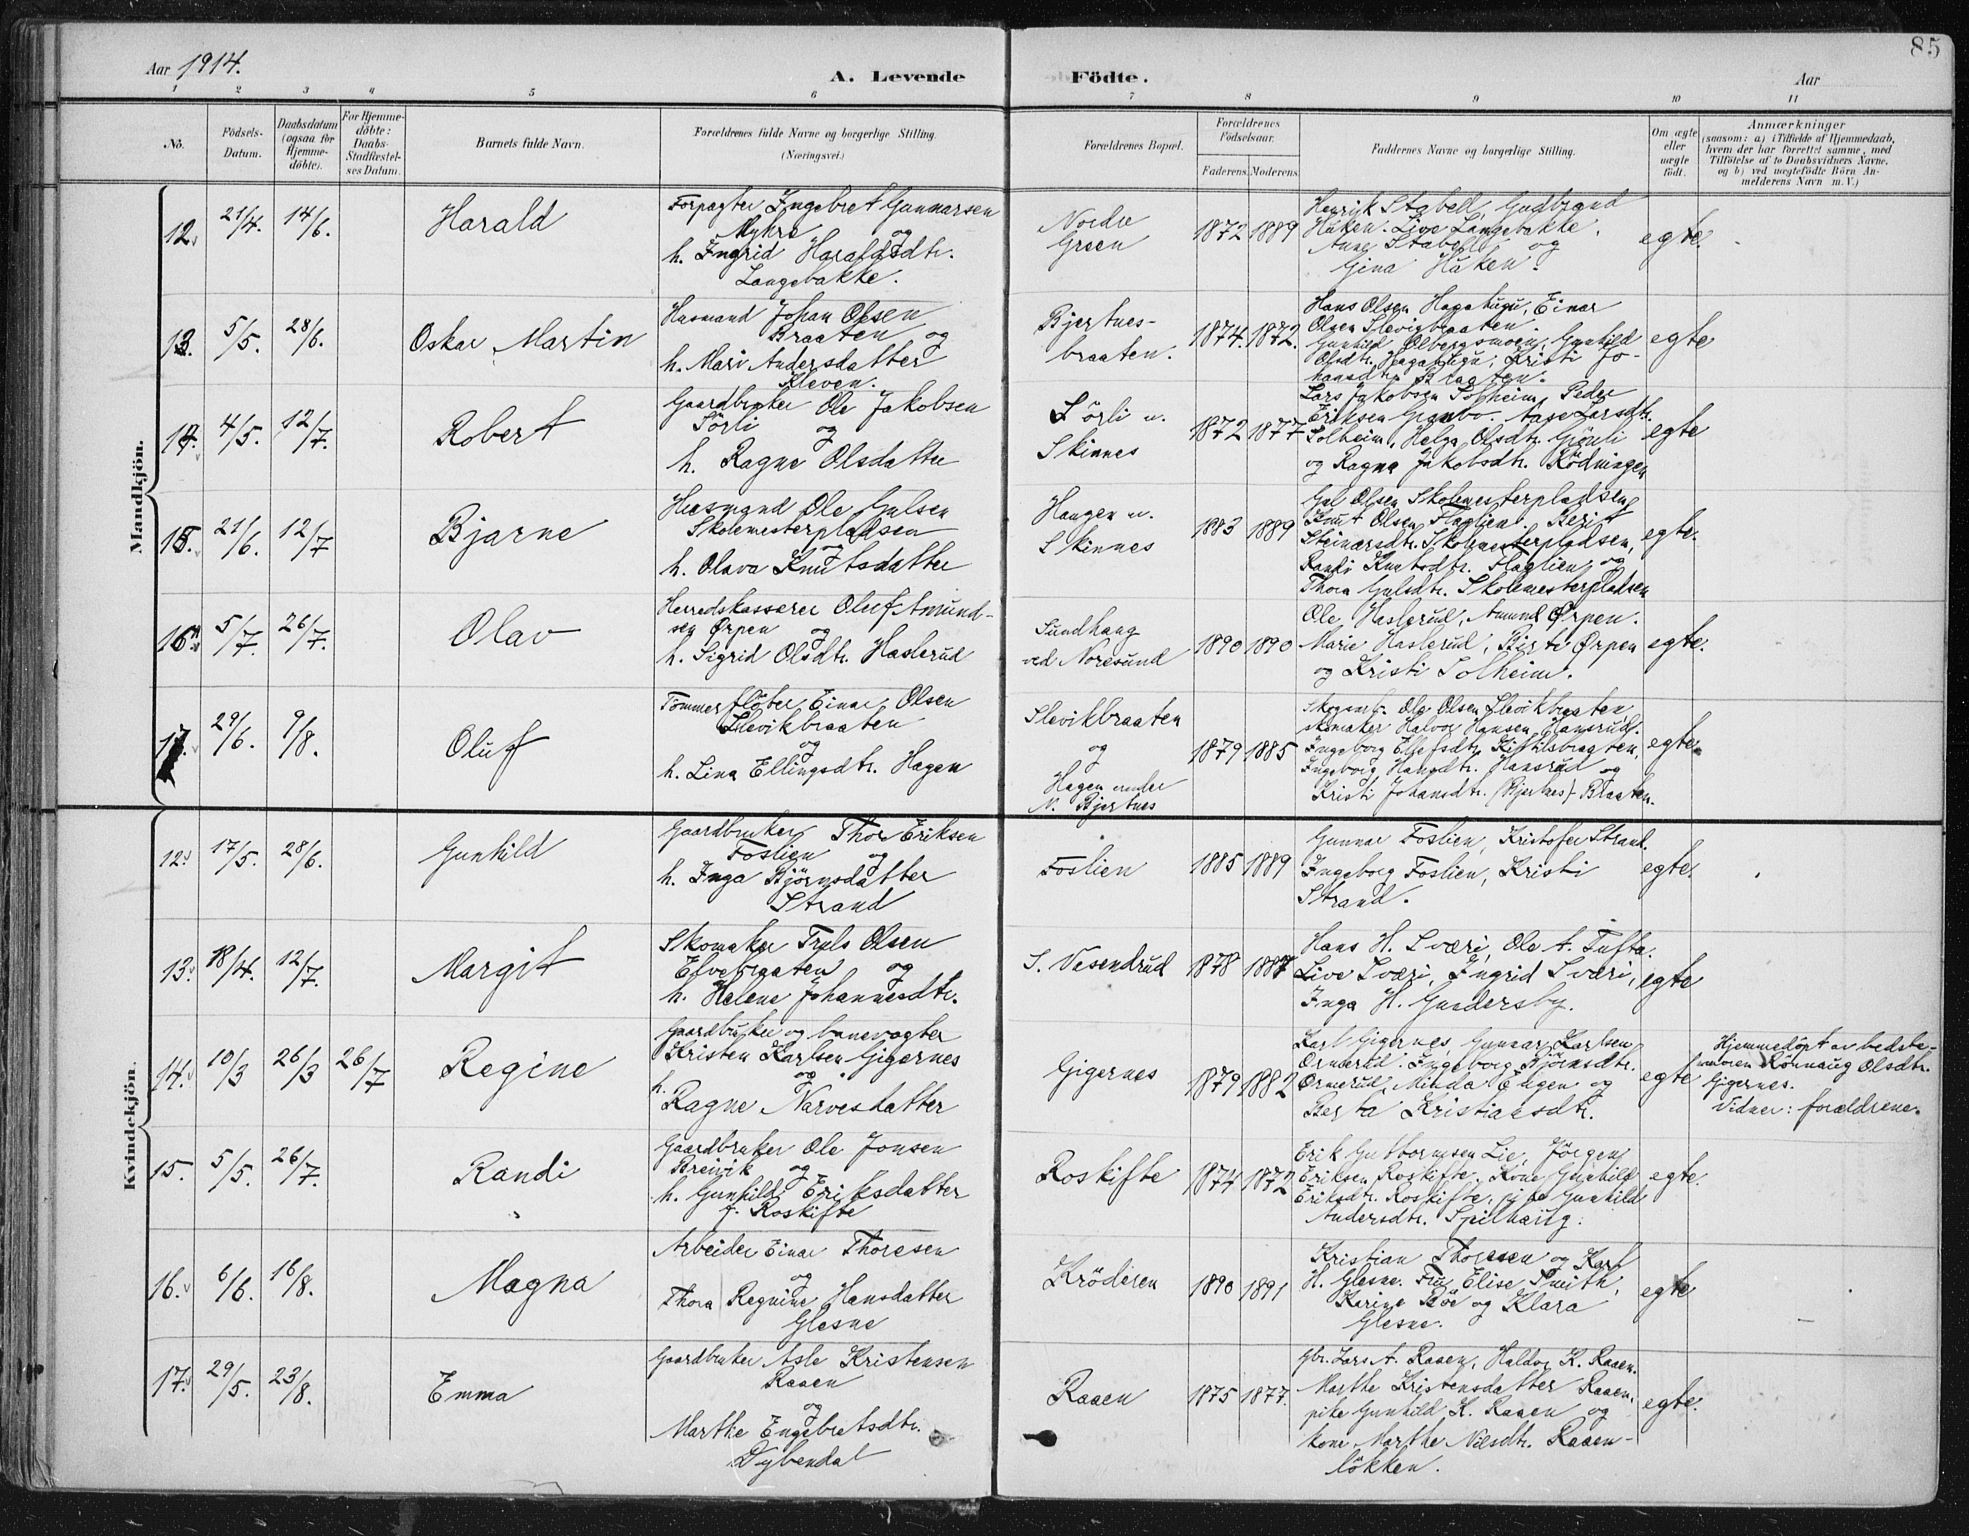 85
Aar 1914.
A. Levende Födte.
Aar
1 2 3 4 5 6 7 8 9 10 11
No.
Födsels-
Datum.
Daabsdatum
(ogsaa for
Hjemme-
döbte).
For Hjemme-
döbte:
Daabs-
Stadfæstel-
ses Datum.
Barnets fulde Navn.
Forældrenes fulde Navne og borgerlige Stilling.
(Næringsvei.)
Forældrenes Bopæl.
Forældrenes
Födselsaar.
Faderens. Moderens.
Faddernes Navne og borgerlige Stilling.
Om ægte
eller
uægte
födt.
Anmærkninger
(saasom: a) i Tilfælde af Hjemmedaab,
hvem der har forrettet samme, med
Tilföielse af to Daabsvidners Navne,
og b) ved uægtefödte Börn An-
melderens Navn m. V.)
Mandkjön.
12. 21/4. 14/6. Harald
Forpagter Ingebret Gunnarsen
Myhre og
h. Ingrid Haraldsdtr.
Langebakke.
Nordre
Green
1872 1889
Henrik Stabell, Gudbrand
Haken. Live Langebakke.
Anne Stabell og
Gina Haken.
egte.
13. 5/5. 28/6. Oskar Martin
Husmand Johan Olsen
Braaten og
h. Mari Andersdatter
Kleven.
Bjertnes-
braaten.
1874. 1872.
Hans Olsen Hagatugu, Einar
Olsen Slevigbraaten.
Gunhild Olbergsmoen, Gunhild
Olsdtr. Hagatugu, Kristi Jo-
hansdtr. Braaten.
egte
14. 4/5. 12/7. Robert
Gaardbruker Ole Jakobsen
Sörli og
h. Ragne Olsdatter
Sörli u.
Skinnes
1872 1877
Lars Jakobsen Solheim, Peder
Eriksen Aase Larsdtr.
Solheim, Helga Olsdtr.
og Ragna Jakobsdtr. Rödningen
egte
15. 21/6. 12/7 Bjarne
Husmand Ole Gulsen
Skolemesterpladsen
og
h. Olava Knutsdatter
Haugen u.
Skinnes
1883 1889
Gul Olsen Skolemesterpladsen,
Knut Olsen Flaglien. Berit
Steinarsdtr. Skolemesterpladsen,
Randi Knutsdtr. Flaglien og
Thora Gulsdtr. Skolemesterpladsen
egte.
16. 5/7. 26/7. Olav
Herredskasserer Oluf Amund-
sen Ørpen og
h. Sigrid Olsdtr. Haslerud
Sundhaug
ved Noresund
1890 1890
Ole Haslerud, Amund Ørpen.
Marie Haslerud, Birte Ørpen
og Kristi Solheim.
egte.
17. 29/6. 9/8. Oluf
Tømmerfløter Einar Olsen
Slevikbraaten
og
h. Lina Ellingsdtr. Hagen
Slevikbraaten
og
Hagen under
N. Bjertnes
1879 1885
Skogsarb. Ole Olsen Slevikbraaten
skomaker Halvor Hansen Hansrud.
Ingeborg Ellefsdtr. Kittilsbraaten,
Ingeborg Hansdtr. Hansrud og
Kristi Johansdtr. (Bjertnes)-Braaten.
egte.
Kvindekjön.
12. 17/5. 28/6. Gunhild
Gaardbruker Thor Eriksen
Foslien og
h. Inga Björnsdatter
Strand
Foslien
1885 1889
Gunnar Foslien, Kristofer Strand.
Ingeborg Foslien, Kristi
Strand.
egte.
13. 18/4. 12/7. Margit
Skomaker Truls Olsen
Elvebraaten og
h. Helene Johannesdtr.
S. Vesendrud
1878 1887
Hans H. Sværi, Ole A. Tufta.
Live Sværi, Ingrid Sværi,
Inga H. Gundersby.
egte
14. 10/3 26/3 26/7 Regine
Gaardbruker og banevogter
Kristen Karlsen Gigernes
og
h.
Ragne Narvesdatter
Gigernes
1879 1882
Karl Gigernes, Gunnar Karlsen
Ormerud. Ingeborg Björnsdtr.
Ormerud, Minda Engen og
Berta Kristiansdtr.
egte
Hjemmedöpt av bedste-
moren Rönnaug Olsdtr.
Gigernes.
Vidner: forældrene.
15. 5/5. 26/7. Randi
Gaardbruker Ole Jonsen
Breivik og
h. Gunhild Eriksdatter
f. Roskifte
Roskifte
1874 1872
Erik Guttormsen Lie, Jörgen
Eriksen Roskifte. Kone Gunhild
Eriksdtr. Roskifte, pike Gunhild
Andersdtr. Spilhaug.
egte.
16. 6/6. 16/8. Magna
Arbeider Einar Thoresen
og
Thora Regnine Hansdatter
Glesne
Kröderen
1890 1891
Kristian Thoresen og Karl
H. Glesne. Fru Elise Smith,
Karine Böe og Klara
Glesne.
egte
17. 29/5. 23/8. Emma
Gaardbruker Asle Kristensen
Raaen
og
Marthe Engebretsdtr.
Dybendal
Raaen
1875 1877.
Gbr. Lars A. Raaen, Haldor K. Raaen.
Marthe Kristensdatter Raaen.
pike Gunhild K. Raaen og
kone Marthe Nilsdtr. Raaen-
lökken.
egte.